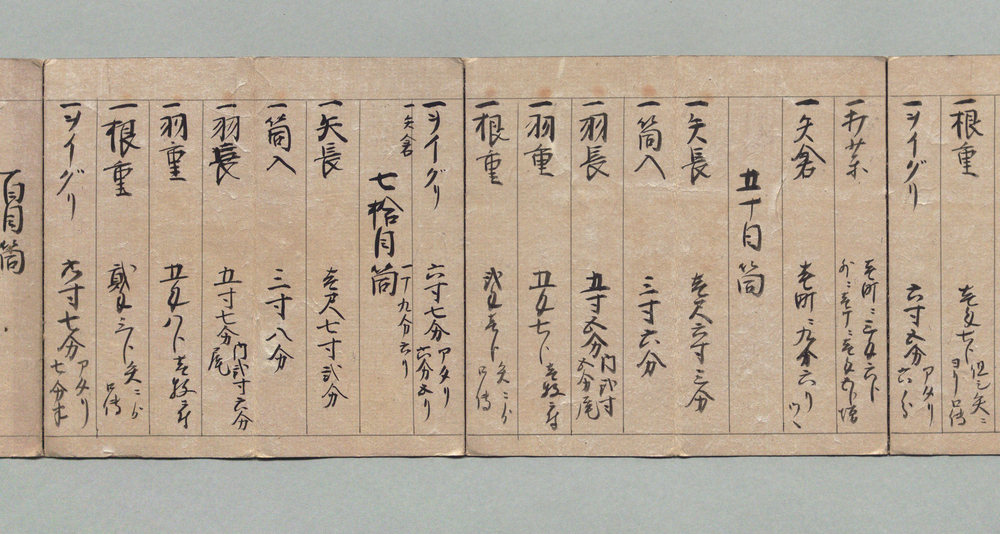 一根重 壱匁七卜 但シ矢ニヨリ口傳
一ヲイグリ 六寸五分 アタリ六分
壱町ニ三匁六卜
一矢倉 壱町ニ九分六リ
五十目筒
一矢長 壱尺六寸三分
一筒入 三寸六分
一羽長 五寸五分 内弐寸五分尾
一羽重 五匁七卜 壱枚ニ付
一根重 弐匁壱卜 矢ニヨリ口傳
一ヲイグリ 六寸七分 アタリ六分五リ
一矢倉 一丁九分六リ
七拾目筒
一矢長 壱尺七寸弐分
一筒入 三寸八分
一羽長 五寸七分 内弐寸六分尾
一羽重 五匁八卜 壱枚ニ付
一根重 貳匁三卜 矢ニヨリ口傳
一ヲイグリ 六寸七分 アタリ七分
百目筒